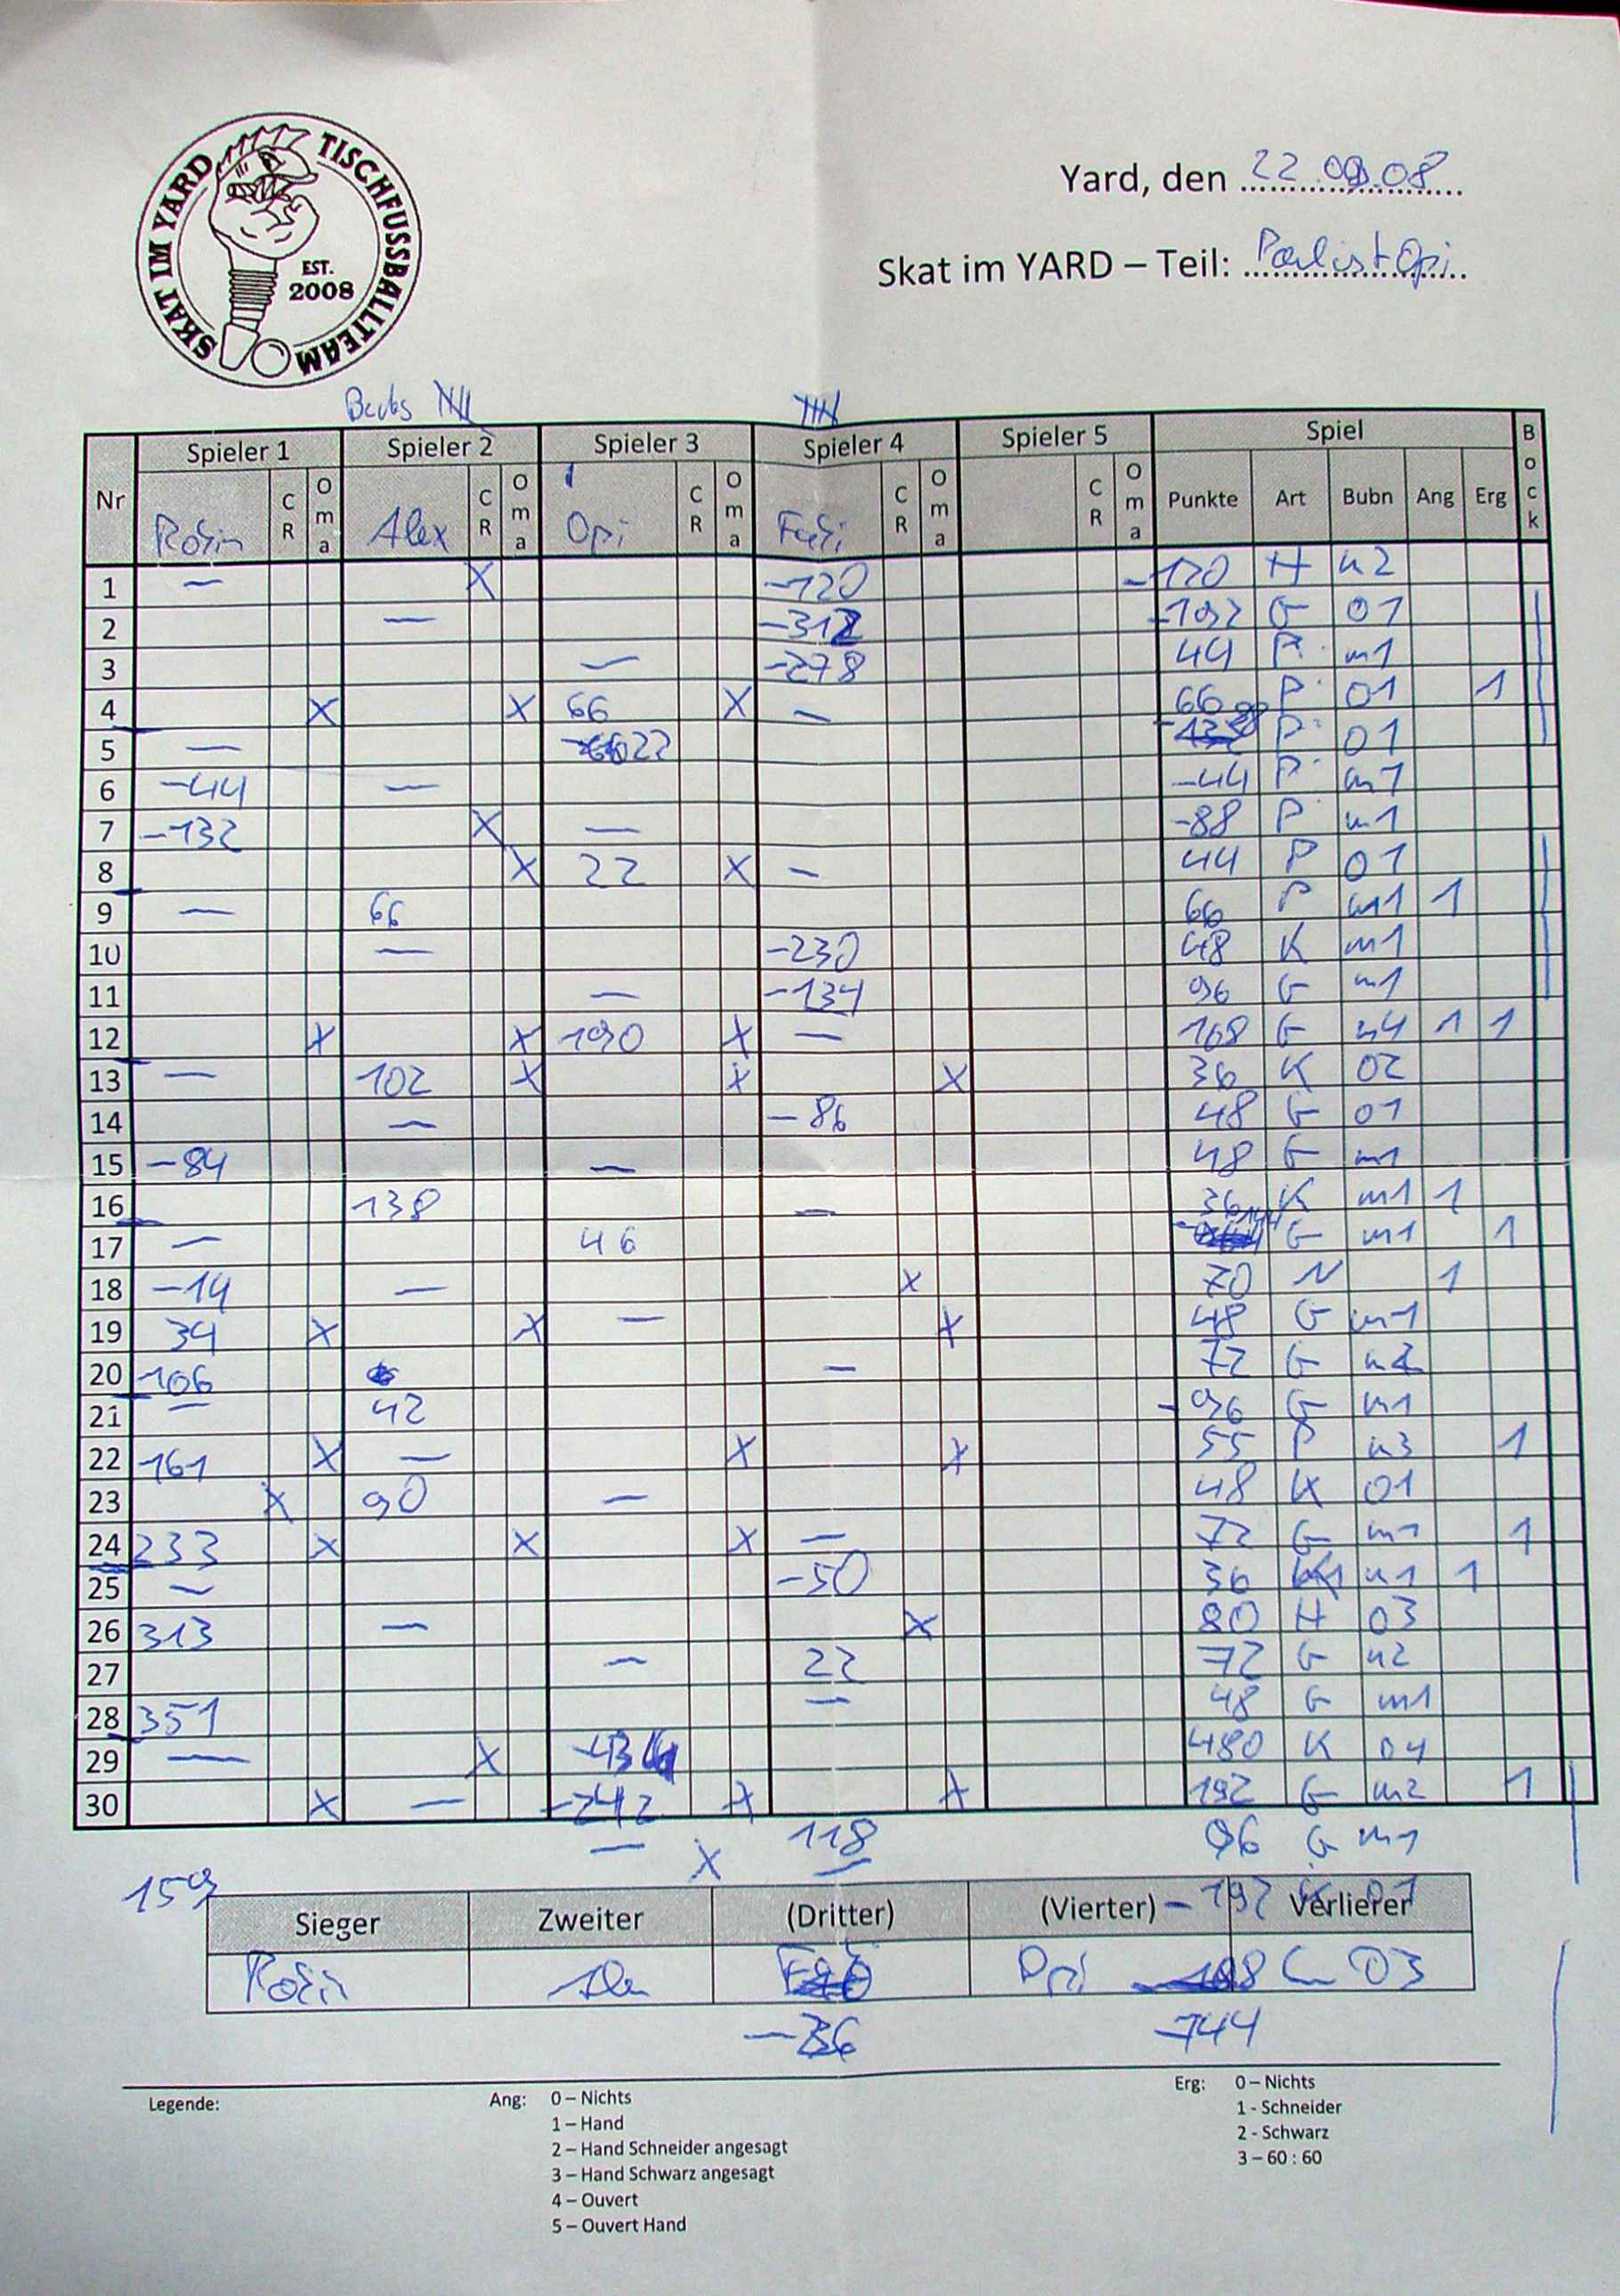 SKAT IM YARD TISCHFUSSBALLTEAM
EST.
2008
Yard, den 22.09.08
Skat im YARD – Teil: Paulist Opi
Nr Spieler 1 Spieler 2 Spieler 3 Spieler 4 Spieler 5 Spiel Bock
Robin CR Oma Alex CR Oma Opi CR Oma Fabi CR Oma CR Oma Punkte Art Bubn Ang Erg
1 — X -120 -120 H u2
2 — -312 -192 G 01
3 — -278 44 P m1
4 X X 66 X — 66 P 01 1
5 — 22 P 01
6 -44 — -44 P m1
7 -132 X — -88 P u1
8 X 22 X — 44 P 01
9 — 66 66 P m1 1
10 — -230 48 K m1
11 — -134 96 G m1
12 X X 190 X — 168 G u4 1 1
13 — 102 X X X 36 K 02
14 — -86 48 G 01
15 -84 — 48 G m1
16 138 — 36 K m1 1
17 — 46 144 G m1 1
18 -14 — X 70 N 1
19 34 X X — X 48 G m1
20 106 — 72 G u2
21 — 42 -96 G u1
22 161 X — X X 55 P u3 1
23 X 90 — 48 K 01
24 233 X X X — 72 G m1 1
25 — -50 36 u1 1
26 313 — X 80 H 03
27 — 22 72 G u2
28 351 — 48 G m1
29 — X -434 480 K 04
30 X — -242 X X 192 G m2 1
— X 118 96 G m1
159 — -192 K 01
Sieger Zweiter (Dritter) (Vierter) Verlierer
Robin Alex Opi 03
-36 -744
Legende:
Ang: 0 – Nichts
1 – Hand
2 – Hand Schneider angesagt
3 – Hand Schwarz angesagt
4 – Ouvert
5 – Ouvert Hand
Erg: 0 – Nichts
1 - Schneider
2 - Schwarz
3 – 60 : 60